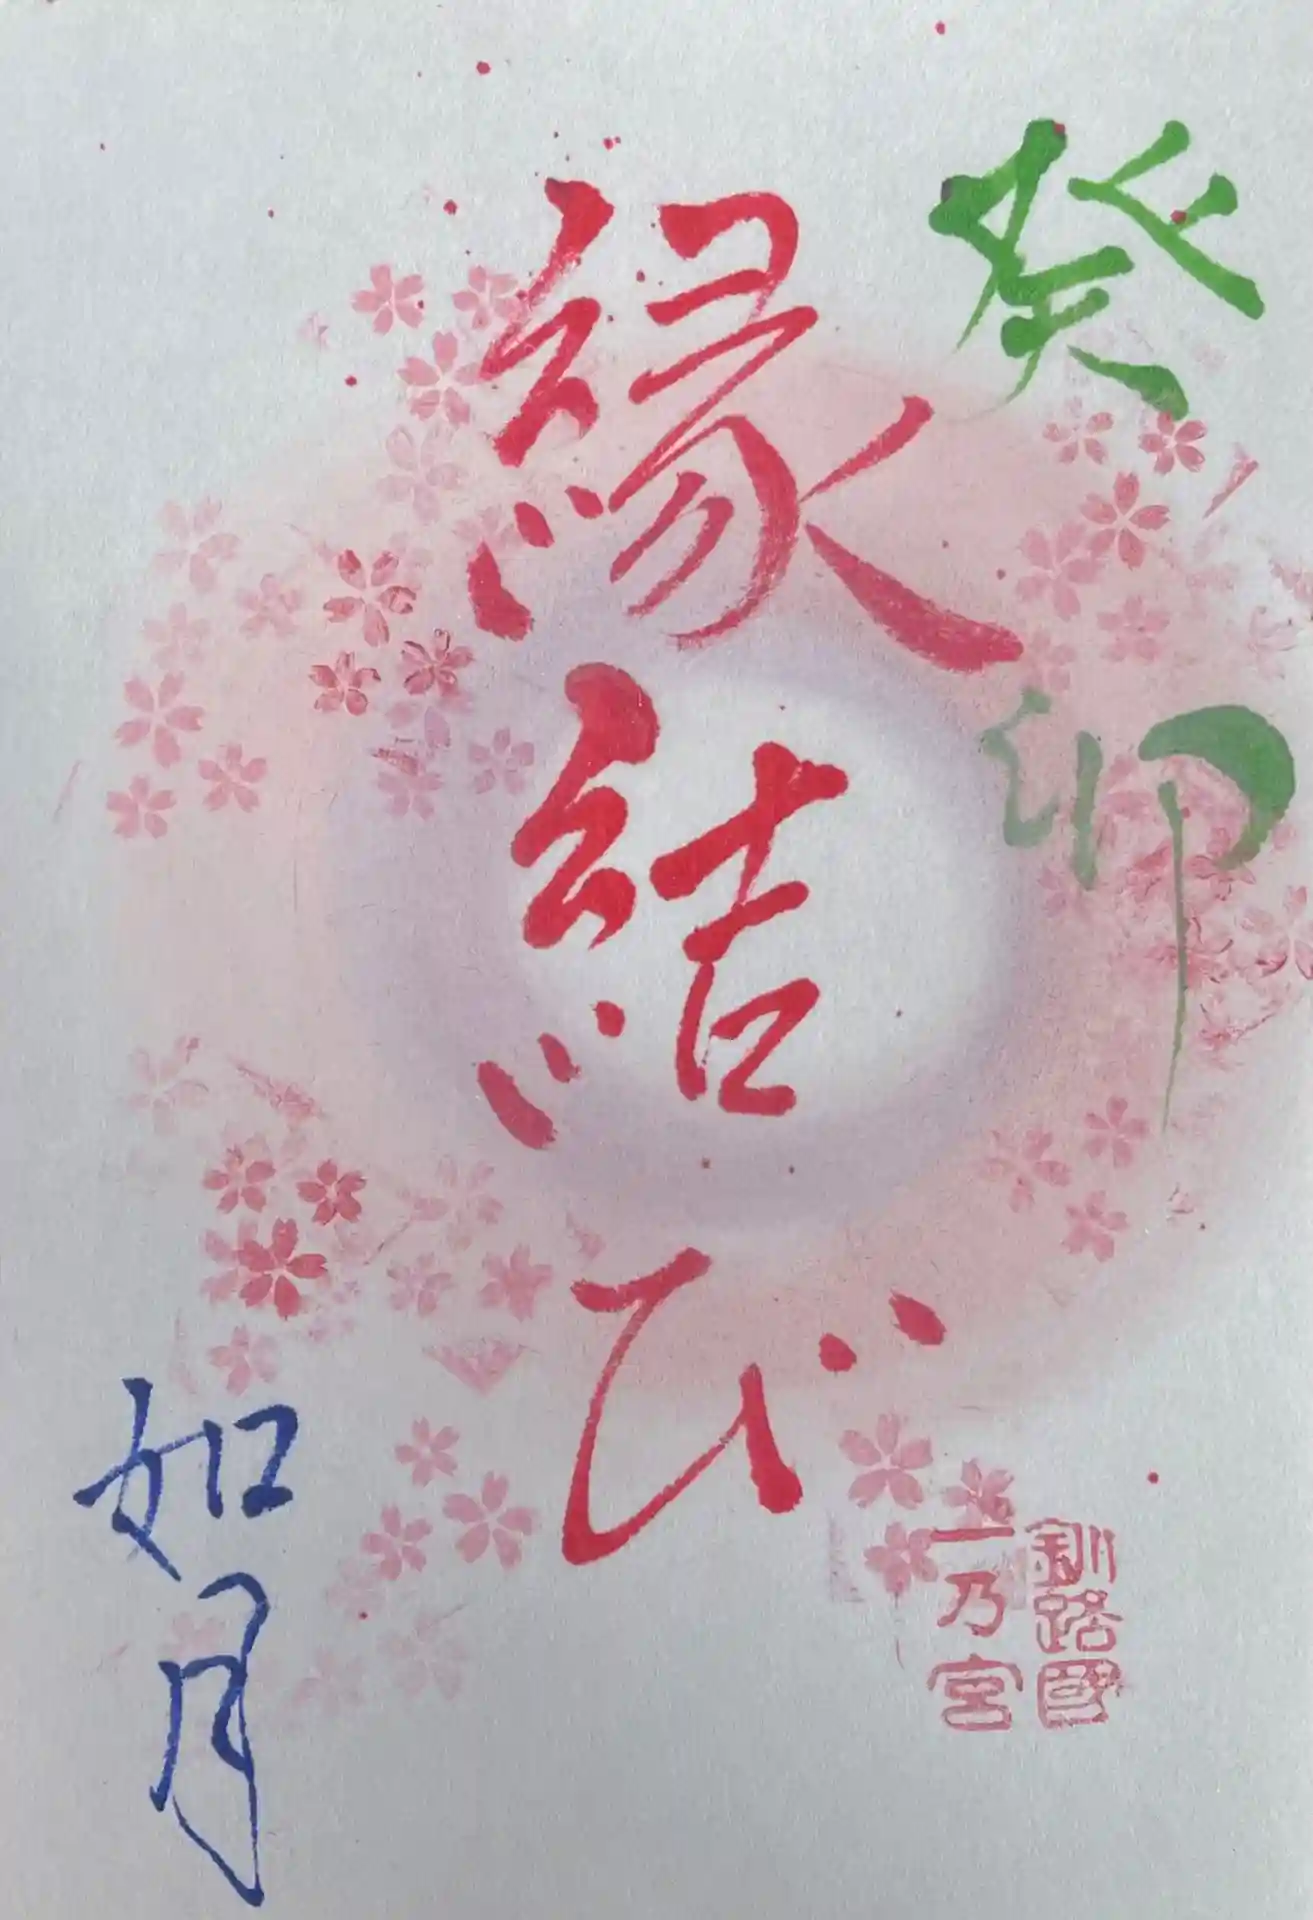 癸卯
縁結び
釧路國
一乃宮
如月